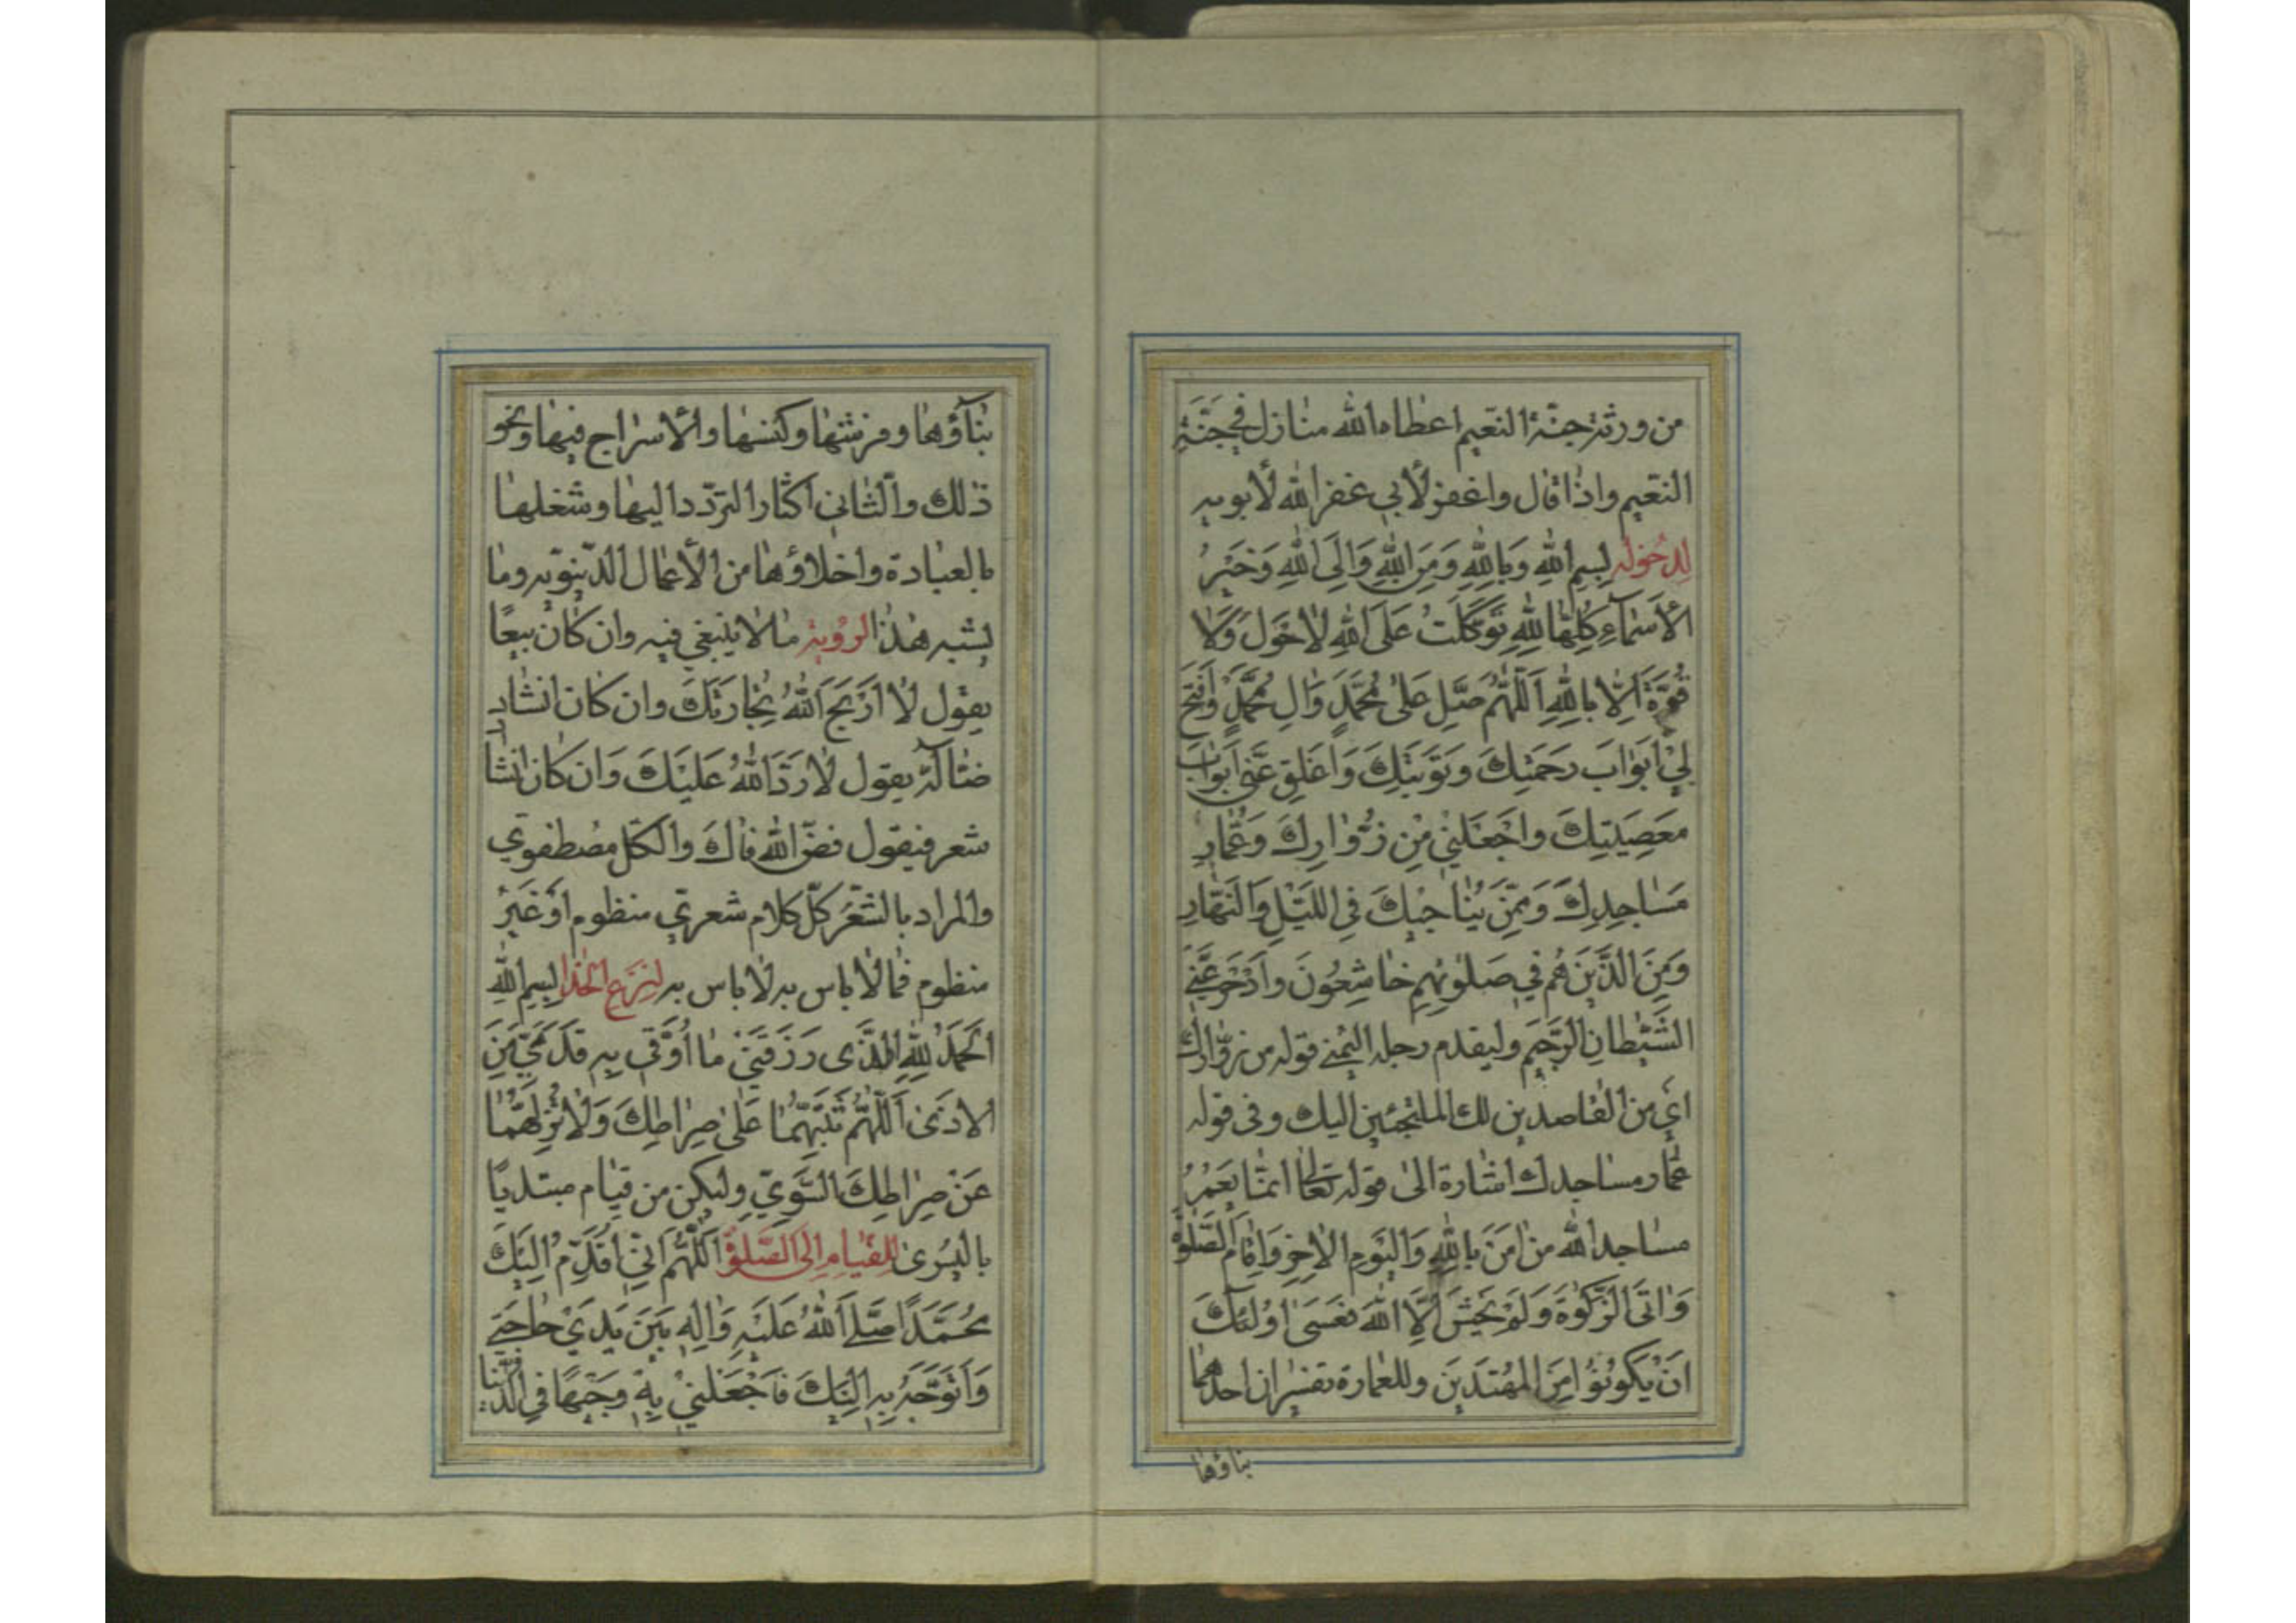 من ورثة جنة النعيم اعطاه الله منازل في جنة
النعيم واذا قال واغفر لأبي غفر الله لأبويه
لدخوله بسم الله وَبِاللهِ وَمِنَ اللهِ وَاِلَى اللهِ وَخَيْرُ
الأَسْمَآءِ كُلِّهَا لِلّٰهِ تَوَكَّلْتُ عَلَى اللهِ لاحَوْلَ وَلا
قُوَّةَ اِلّا بِاللهِ اَللّٰهُمَّ صَلِّ عَلى مُحَمَّدٍ وَالِ مُحَمَّدٍ وَافْتَحْ
لِي اَبْوابَ رَحْمَتِكَ وَتَوْبَتِكَ وَاَغْلِقْ عَنّي اَبْوابَ
مَعْصِيَتِكَ وَاجْعَلْني مِنْ زُوّارِكَ وَعُمّارِ
مَساجِدِكَ وَمِمَّنْ يُناجيكَ فِي اللَّيْلِ وَالنَّهارِ
وَمِنَ الَّذينَ هُمْ في صَلوتِهِمْ خاشِعُونَ وَادْحَرْ عَنّي
الشَّيْطانَ الرَّجيمَ وليقدم رجله اليمنى قوله من زوّارك
اي من القاصدين لك الملتجئين اليك وفى قوله
عمّار مساجدك اشارة الى قوله تعالى انما يَعْمُرُ
مساجد الله من امَنَ بِاللهِ وَالْيَوْمِ الاخِرِ وَاَقامَ الصَّلوةَ
وَاتَى الزَّكوةَ وَلَمْ يَخْشَ اِلَّا اللهَ فَعَسى اُولئِكَ
اَنْ يَكُونُوا مِنَ الْمُهْتَدينَ وللعمارة تفسيران احدهما
بناؤها
بناؤها وفرشها وكنسها والأسراج فيها ونحو
ذلك والثاني اكثار التردّد اليها وشغلها
بالعبادة واخلاؤها من الأعمال الدّنيويّه وما
يشبه هذا لرؤية ما لا ينبغي فيه وان كان بيعًا
يقول لا اَرْبَحَ اللهُ تِجارَتَكَ وان كان انشاد
ضالّة يقول لا رَدَّ اللهُ عَلَيْكَ وان كان انشا
شعر فيقول فضّ الله فاك والكل مصطفوي
والمراد بالشعر كلّ كلام شعري منظوم اَوْ غَيْرُ
منظوم فما لا باس به لا باس به لنزع الحذا بسم الله
اَلْحَمْدُ لِلّٰهِ الَّذى رَزَقَني ما اُوَقّي بِهِ قَدَمَيَّ مِنَ
الاَذى اَللّٰهُمَّ ثَبِّتْهُما عَلى صِراطِكَ وَلا تُزِلَّهُما
عَنْ صِراطِكَ السَّوِيِّ وليكن من قيام مبتديًا
باليسرى للقيام الى الصلوة اَللّٰهُمَّ اِنّي اُقَدِّمُ اِلَيْكَ
مُحَمَّدًا صَلَّى اللهُ عَلَيْهِ وَالِهِ بَيْنَ يَدَيْ حاجَتي
وَاَتَوَجَّهُ بِهِ اِلَيْكَ فَاجْعَلْني بِهِ وَجيهًا فِي الدُّنْيا